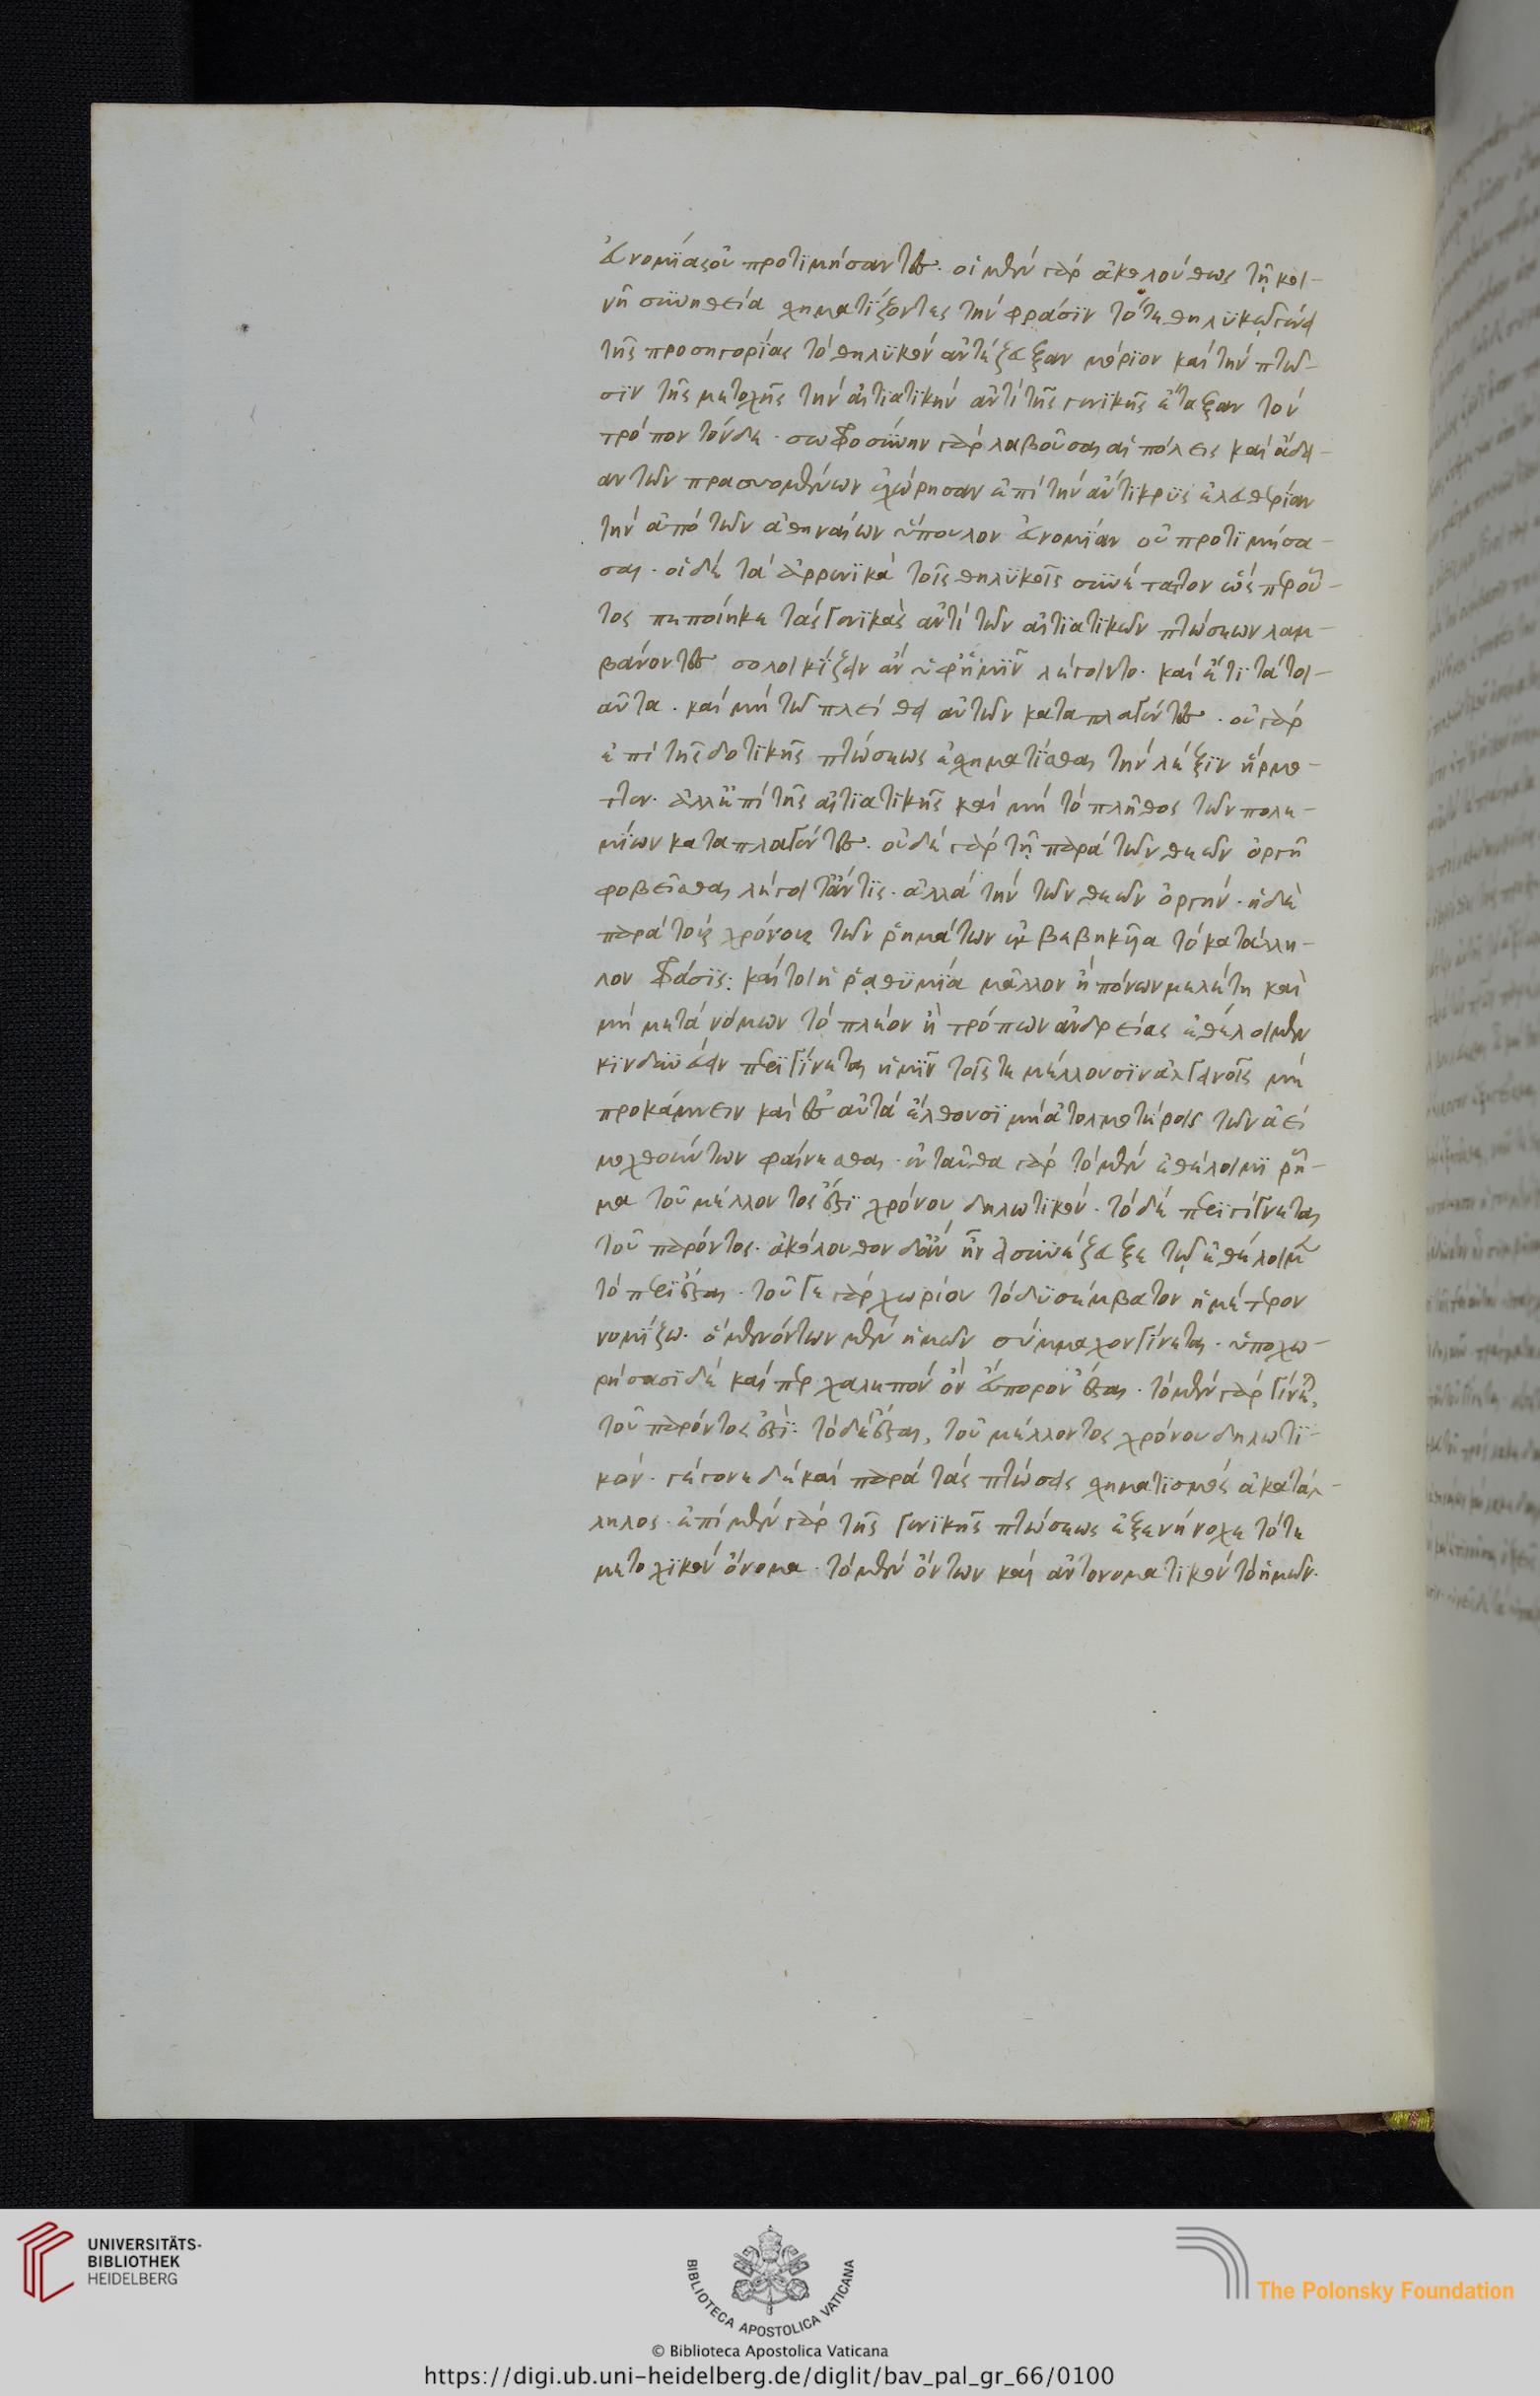 εὐνομίας οὐ προτιμήσαντες. οἱ μὲν γὰρ ἀκολούθως τῇ κοι-
νῇ συνηθεία σχηματίζοντες τὴν φράσιν τότε θηλυκῶ γένει
τῆς προσηγορίας τὸ θηλυκὸν ἀντέζευξαν μόριον καὶ τὴν πτῶ-
σιν τῆς μετοχῆς τὴν αἰτιατικὴν ἀντὶ τῆς γενικῆς ἔταξαν τὸν
τρόπον τόνδε. σωφροσύνην γὰρ λαβοῦσαι αἱ πόλεις καὶ ἄδει-
αν τῶν πρασσομένων ἐχώρησαν ἐπὶ τὴν ἄντικρυς ἐλευθερίαν
τὴν ἀπὸ τῶν ἀθηναίων ὕπουλον εὐνομίαν οὐ προτιμήσα-
σαι. οἱ δὲ τὰ ἀρρενικὰ τοῖς θηλυκοῖς συνέταττον ὡς προῦ-
τος πεποίηκε τὰς γενικὰς ἀντὶ τῶν αἰτιατικῶν πτώσεων λαμ-
βάνοντες σολοικίζειν ἂν ὑφ' ἡμῖν λέγοιντο. καὶ ἔτι τὰ τοι-
αῦτα. καὶ μὴ τῶ πλείθει αὐτῶν καταπλαγέντες. οὐ γὰρ
ἐπὶ τῆς δοτικῆς πτώσεως ἐσχηματίσθαι τὴν λέξιν ἥρμο-
ττεν. ἀλλ' ἐπὶ τῆς αἰτιατικῆς καὶ μὴ τὸ πλῆθος τῶν πολε-
μίων καταπλαγέντες. οὐδὲ γὰρ τῇ παρὰ τῶν θεῶν ὀργῆ
φοβεῖσθαι λέγοιτ' ἄν τις. ἀλλὰ τὴν τῶν θεῶν ὀργήν. ἡ δὲ
παρὰ τοὺς χρόνους τῶν ῥημάτων ἐκβεβηκῦα τὸ κατάλλη-
λον φράσις: καίτοι ἡ ῥαθυμία μᾶλλον ἢ πόνων μελέτη καὶ
μὴ μετὰ νόμων τὸ πλέον ἢ τρόπων ἀνδρείας ἐθέλοιμεν
κινδυνεύειν περιγίνεται ἡμῖν τοῖς τε μέλλουσιν ἀλγεινοῖς μὴ
προκάμνειν καὶ ἐς αὐτὰ ἐλθοῦσι μὴ ἀτολμοτέροις τῶν ἀεὶ
μοχθούντων φαίνεσθαι. ἐνταῦθα γὰρ τὸ μὲν ἐθέλοιμι ῥῆ-
μα τοῦ μέλλοντος ἐστὶ χρόνου δηλωτικόν. τὸ δὲ περιγίγνεται
τοῦ παρόντος. ἀκόλουθον δ' ἂν ἦν εἰ συνέζευξε τῶ ἐθέλοιμεν
τὸ περιέσται. τοῦ τε γὰρ χωρίου τὸ δυσέμβατον ἡμέτερον
νομίζω. ὃ μενόντων μὲν ἡμῶν σύμμαχον γίνεται. ὑποχω-
ρήσασι δὲ καίπερ χαλεπὸν ὂν εὔπορον ἔσται. τὸ μὲν γὰρ γίνεται,
τοῦ παρόντος ἐστὶ. τὸ δὲ ἔσται, τοῦ μέλλοντος χρόνου δηλωτι-
κόν. γέγονε δὲ καὶ παρὰ τὰς πτώσεις σχηματισμὸς ἀκατάλ-
ληλος. ἐπὶ μὲν γὰρ τῆς γενικῆς πτώσεως ἐξενήνοχε τό τε
μετοχικὸν ὄνομα. τὸ μὲν ὄντων καὶ ἀντονοματικὸν τὸ ἡμῶν.
UNIVERSITÄTS-
BIBLIOTHEK
HEIDELBERG
BIBLIOTECA APOSTOLICA VATICANA
The Polonsky Foundation
© Biblioteca Apostolica Vaticana
https://digi.ub.uni-heidelberg.de/diglit/bav_pal_gr_66/0100